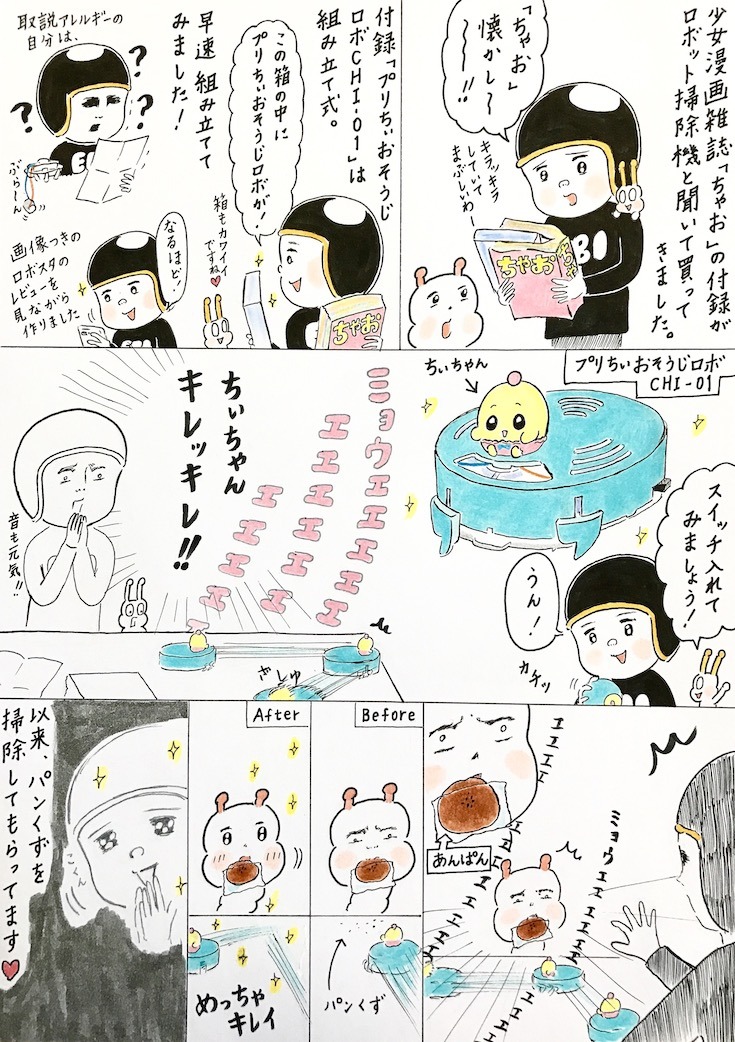 少女漫画雑誌「ちゃお」の付録が
ロボット掃除機と聞いて買って
きました。
「ちゃお」
懐かし〜
〜!!
キラッキラ
していて
まぶしいわ〜
ちゃお
付録「プリちぃおそうじ
ロボCHI-01」は
組み立て式。
この箱の中に
プリちぃおそうじロボが!
箱もカワイイ
ですね♥
ちゃお
早速 組み立てて
みました!
取説アレルギーの
自分は、
?
?
?
EBI
ぶらーん
なるほど!
画像つきの
ロボスタの
レビューを
見ながら
作りました
プリちぃおそうじロボ
CHI-01
ちぃちゃん
スイッチ入れて
みましょう!
うん!
カチッ
ミョウエエエエエエ
エエエエエエ
エエエエエ
ちぃちゃん
キレッキレ!!
音も元気!!
きしゅ
エエエエ
ミョウエエエエエエ
エエエエエエ
エエエ
あんぱん
Before
After
パンくず
めっちゃ
キレイ
以来、パンくずを
掃除してもらってます♥